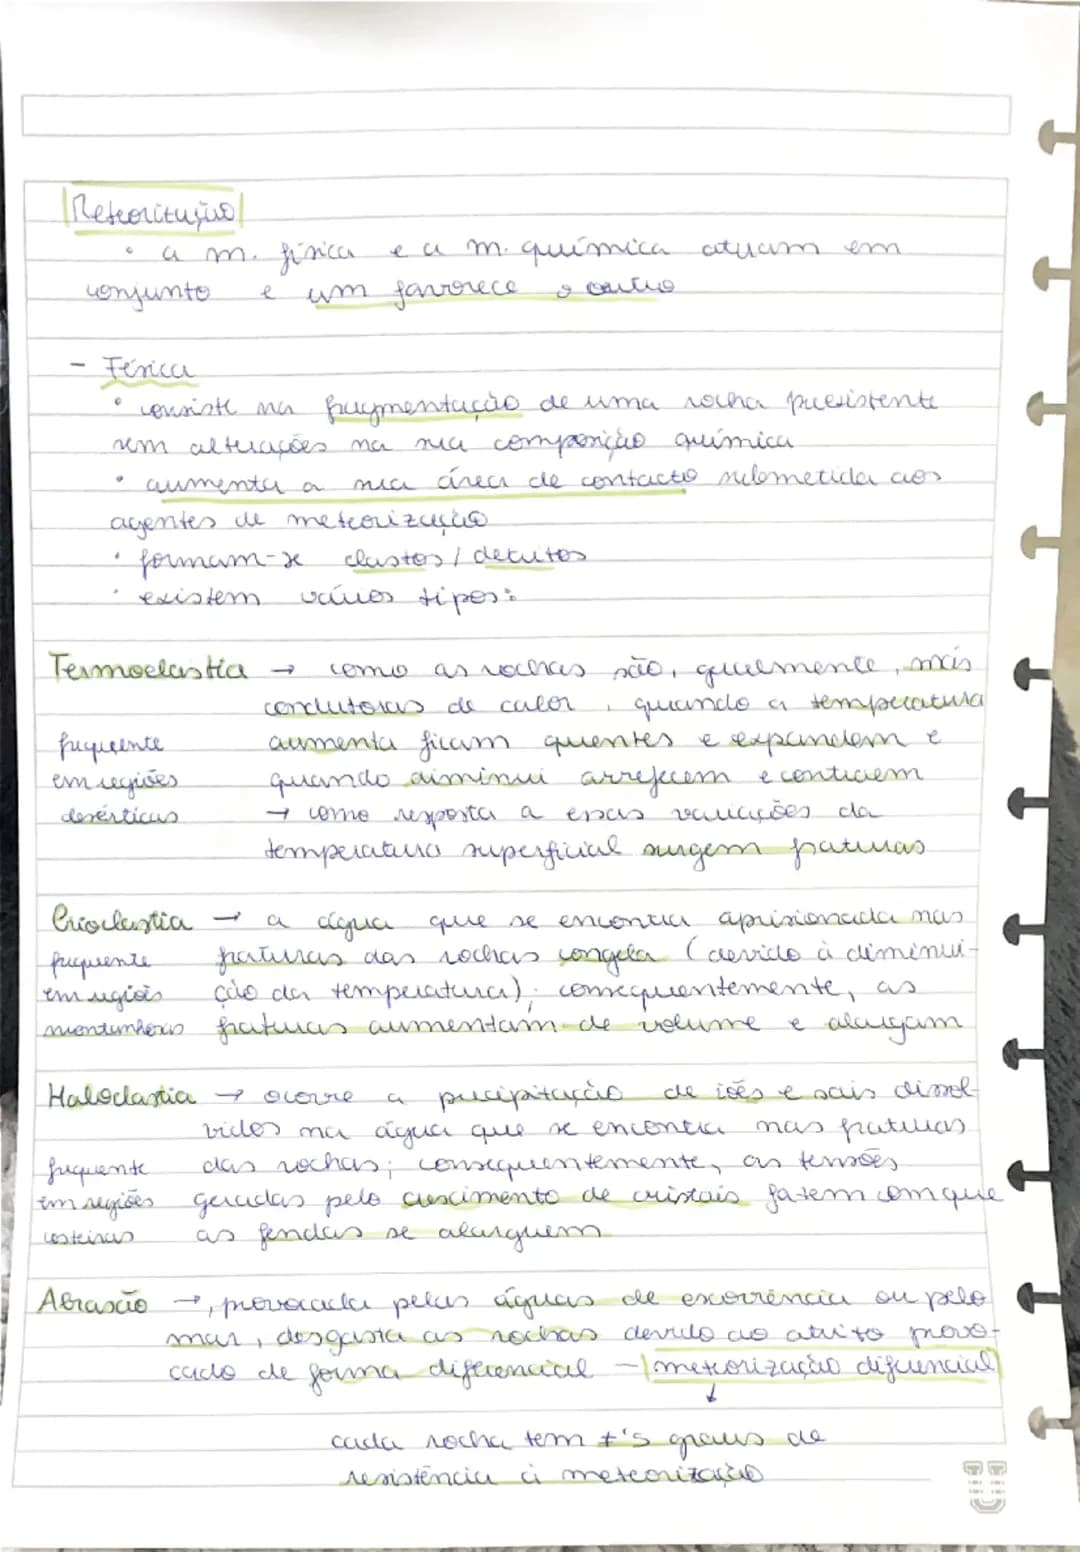 Meteorização
• a m. física e a m. química atuam em
conjunto e um favorece o outro
- Física
• consiste na fragmentação de uma rocha preexistente
sem alterações na sua composição química
• aumenta a sua área de contacto submetida aos
agentes de meteorização
• formam-se clastos / detritos
• existem vários tipos:
Termoclastia → como as rochas são, geralmente, más
condutoras de calor, quando a temperatura
frequente aumenta ficam quentes e expandem e
em regiões quando diminui arrefecem e contraem
desérticas → como resposta a essas variações da
temperatura superficial surgem fraturas
Crioclastia → a água que se encontra aprisionada nas
frequente fraturas das rochas congela (devido à diminui-
em regiões ção da temperatura); consequentemente, as
montanhosas fraturas aumentam de volume e alargam
Haloclastia → ocorre a precipitação de iões e sais dissol-
vidos na água que se encontra nas fraturas
frequente das rochas; consequentemente, as tensões
em regiões geradas pelo crescimento de cristais fazem com que
costeiras as fendas se alarguem
Abrasão →, provocada pelas águas de escorrência ou pelo
mar, desgasta as rochas devido ao atrito provo-
cado de forma diferencial - meteorização diferencial
↓
cada rocha tem ≠'s graus de
resistência à meteorização
U